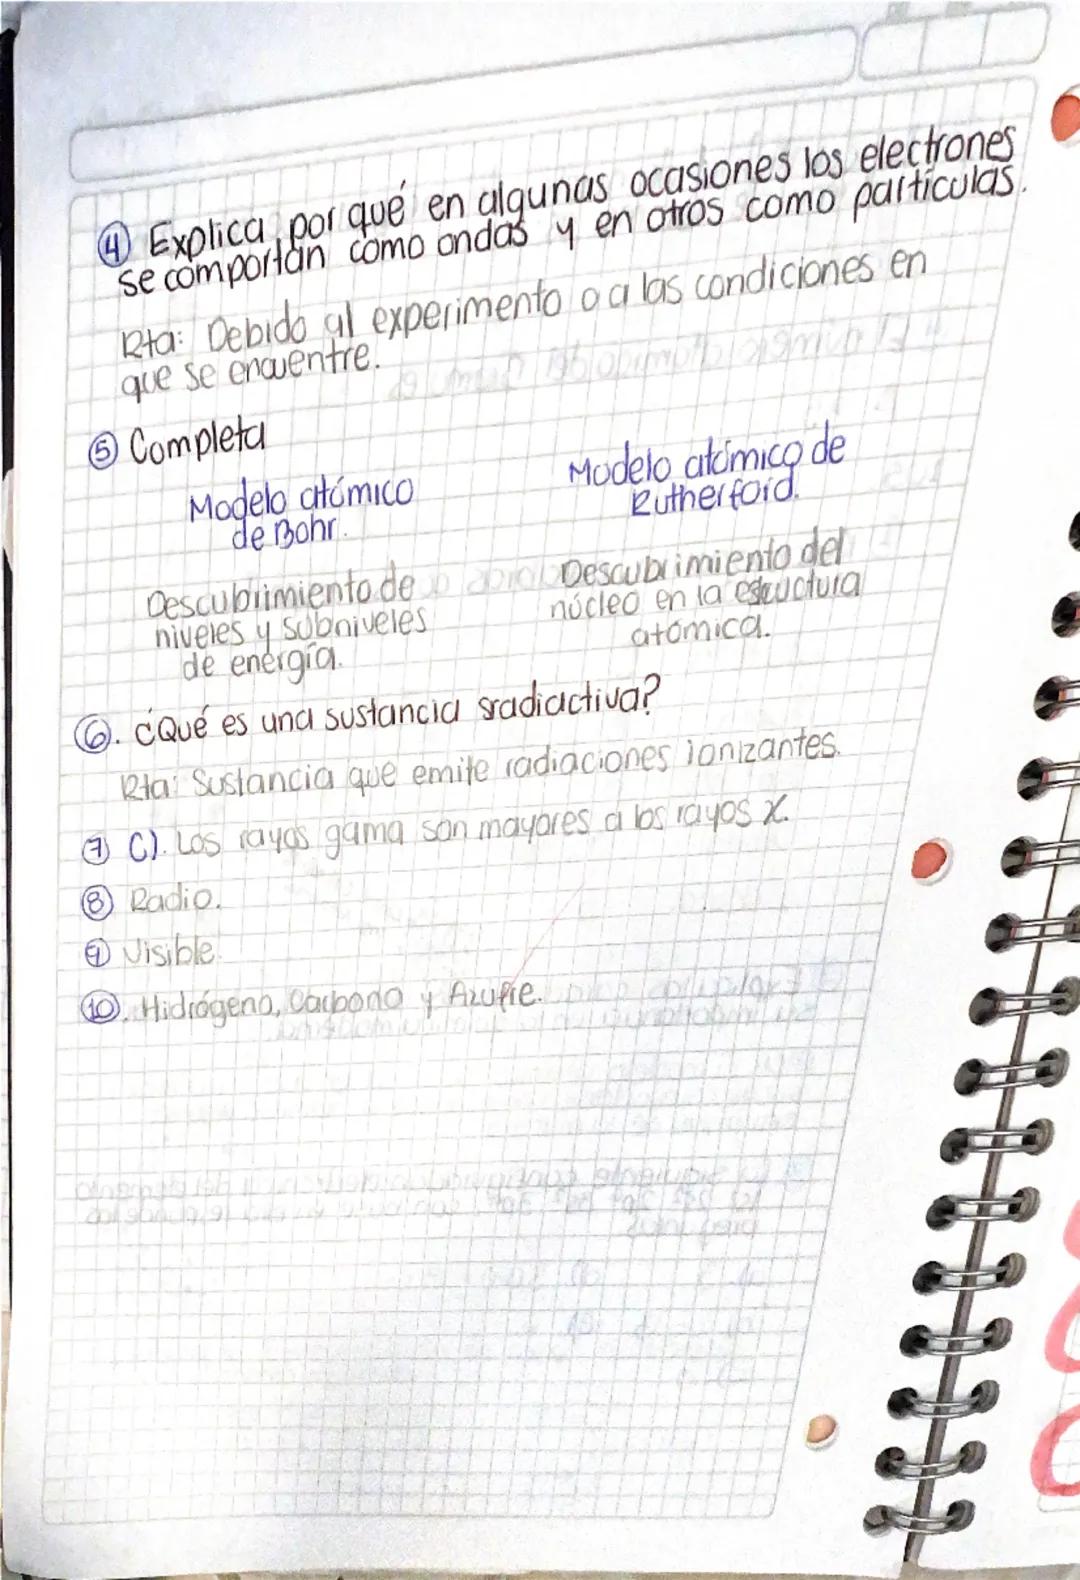 ④ Explica por qué en algunas ocasiones los electrones
se comportan como ondas y en otros como partículas.
Rta: Debido al experimento o a las condiciones en
que se encuentre.
⑤ Completa
Modelo atómico
de Bohr.
Descubrimiento de
niveles y subniveles
de energía.
Modelo atómico de
Rutherford.
Descubrimiento del
núcleo en la estructura
atómica.
⑥. ¿Qué es una sustancia radiactiva?
Rta: Sustancia que emite radiaciones ionizantes.
⑦ C). Los rayos gama son mayores a los rayos X.
⑧ Radio.
⑨ Visible.
⑩. Hidrógeno, Carbono y Azufre.